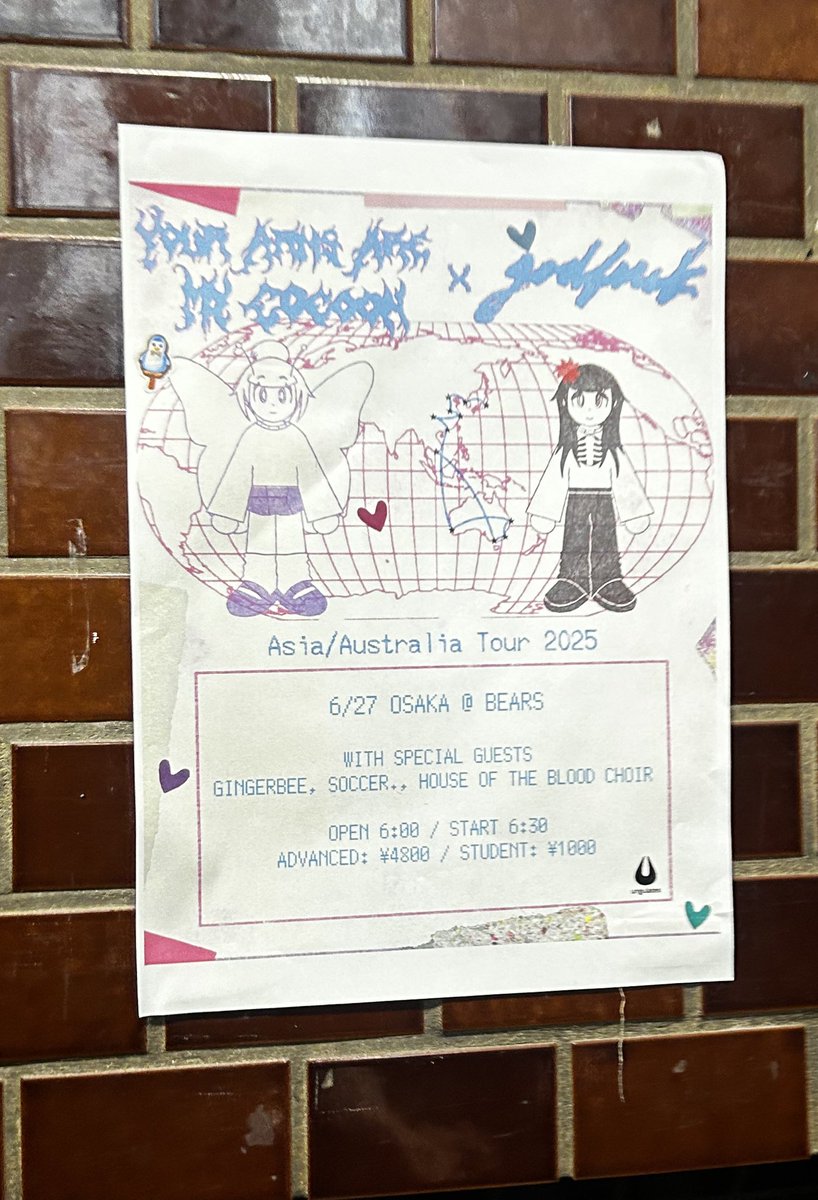 YOUR ARMS ARE
MY COCOON
x
godfuck
Asia/Australia Tour 2025
6/27 OSAKA @ BEARS
WITH SPECIAL GUESTS
GINGERBEE, SOCCER., HOUSE OF THE BLOOD CHOIR
OPEN 6:00 / START 6:30
ADVANCED: ¥4800 / STUDENT: ¥1000